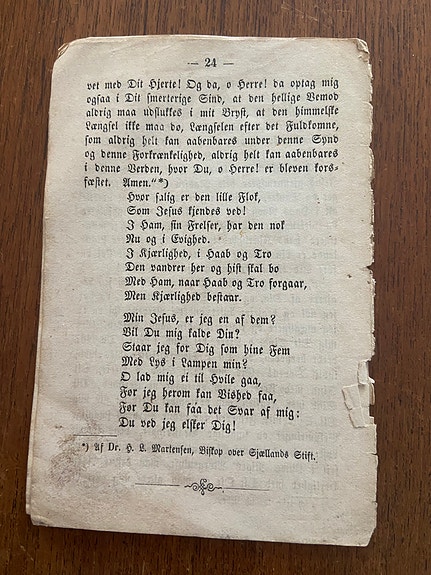 — 24 —
vet med Dit Hjerte! Og da, o Herre! da optag mig
ogsaa i Dit smerterige Sind, at den hellige Vemod
aldrig maa udslukkes i mit Bryst, at den himmelske
Længsel ikke maa do, Længselen efter det Fuldkomne,
som aldrig helt kan aabenbares under denne Synd
og denne Forkrænkelighed, aldrig helt kan aabenbares
i denne Verden, hvor Du, o Herre! er bleven kors-
fæstet. Amen."*)
Hvor salig er den lille Flok,
Som Jesus kjendes ved!
I Ham, sin Frelser, har den nok
Nu og i Evighed.
I Kjærlighed, i Haab og Tro
Den vandrer her og hist skal bo
Med Ham, naar Haab og Tro forgaar,
Men Kjærlighed bestaar.
Min Jesus, er jeg en af dem?
Vil Du mig kalde Din?
Staar jeg for Dig som hine Fem
Med Lys i Lampen min?
O lad mig ei til Hvile gaa,
Før jeg herom kan Vished faa,
Før Du kan faa det Svar af mig:
Du ved jeg elsker Dig!
*) Af Dr. H. L. Martensen, Biskop over Sjællands Stift.